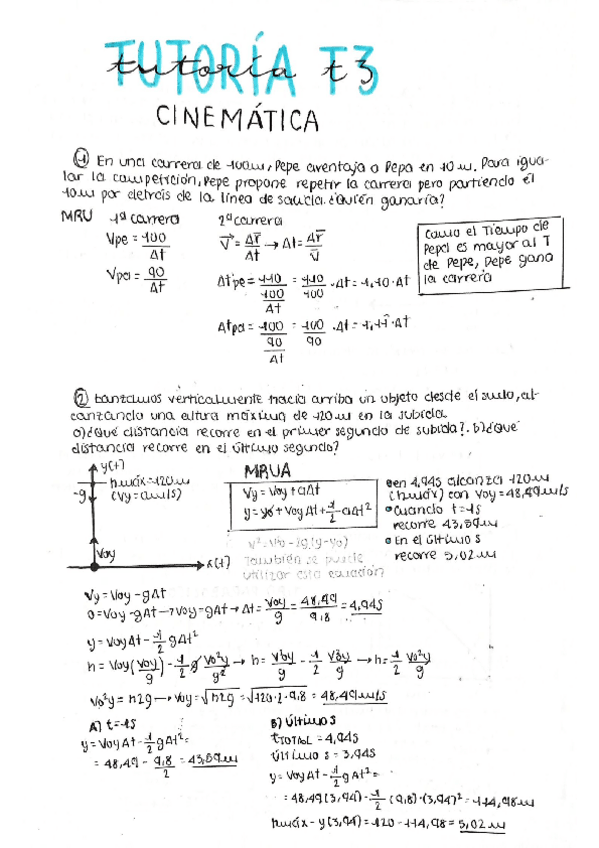 TUTORÍA T3
tutoría t3
CINEMÁTICA
① En una carrera de 100m, Pepe aventaja a Pepa en 10m. Para igua-
lar la competición, Pepe propone repetir la carrera pero partiendo él
10m por detrás de la línea de salida. ¿Quién ganaría?
MRU 1ª carrera 2ª carrera
Vpe = 100/Δt
Vpa = 90/Δt
V⃗ = Δr⃗/Δt → Δt = Δr⃗/v⃗
Δtpe = 110/(100/Δt) = 110/100 · Δt = 1,10 · Δt
Δtpa = 100/(90/Δt) = 100/90 · Δt = 1,11 · Δt
Como el Tiempo de
Pepa es mayor al T
de Pepe, Pepe gana
la carrera
② Lanzamos verticalmente hacia arriba un objeto desde el suelo, al-
canzando una altura máxima de 120m en la subida.
a) ¿Qué distancia recorre en el primer segundo de subida?. b) ¿Qué
distancia recorre en el último segundo?
y(t)
hmáx = 120m
(Vy = 0m/s)
-g
Voy
x(t)
MRUA
Vy = Voy + aΔt
y = yo + VoyΔt + 1/2 aΔt²
También se puede
utilizar esta ecuación
• en 4,94s alcanza 120m
(hmáx) con Voy = 48,49m/s
• Cuando t = 1s
recorre 43,59m
• En el último s
recorre 5,02m
Vy = Voy - gΔt
0 = Voy - gΔt → Voy = gΔt → Δt = Voy/g = 48,49/9,8 = 4,94s
y = VoyΔt - 1/2 gΔt²
h = Voy(Voy/g) - 1/2 g Vo²y/g² → h = Vo²y/g - 1/2 Vo²y/g → h = 1/2 Vo²y/g
Vo²y = h2g → Voy = √h2g = √120·2·9,8 = 48,49m/s
A) t = 1s
y = VoyΔt - 1/2 gΔt² =
= 48,49 - 9,8/2 = 43,59m
B) Último s
tTOTAL = 4,94s
Último s = 3,94s
y = VoyΔt - 1/2 gΔt² =
= 48,49(3,94) - 1/2 (9,8)·(3,94)² = 114,98m
hmáx - y(3,94) = 120 - 114,98 = 5,02m